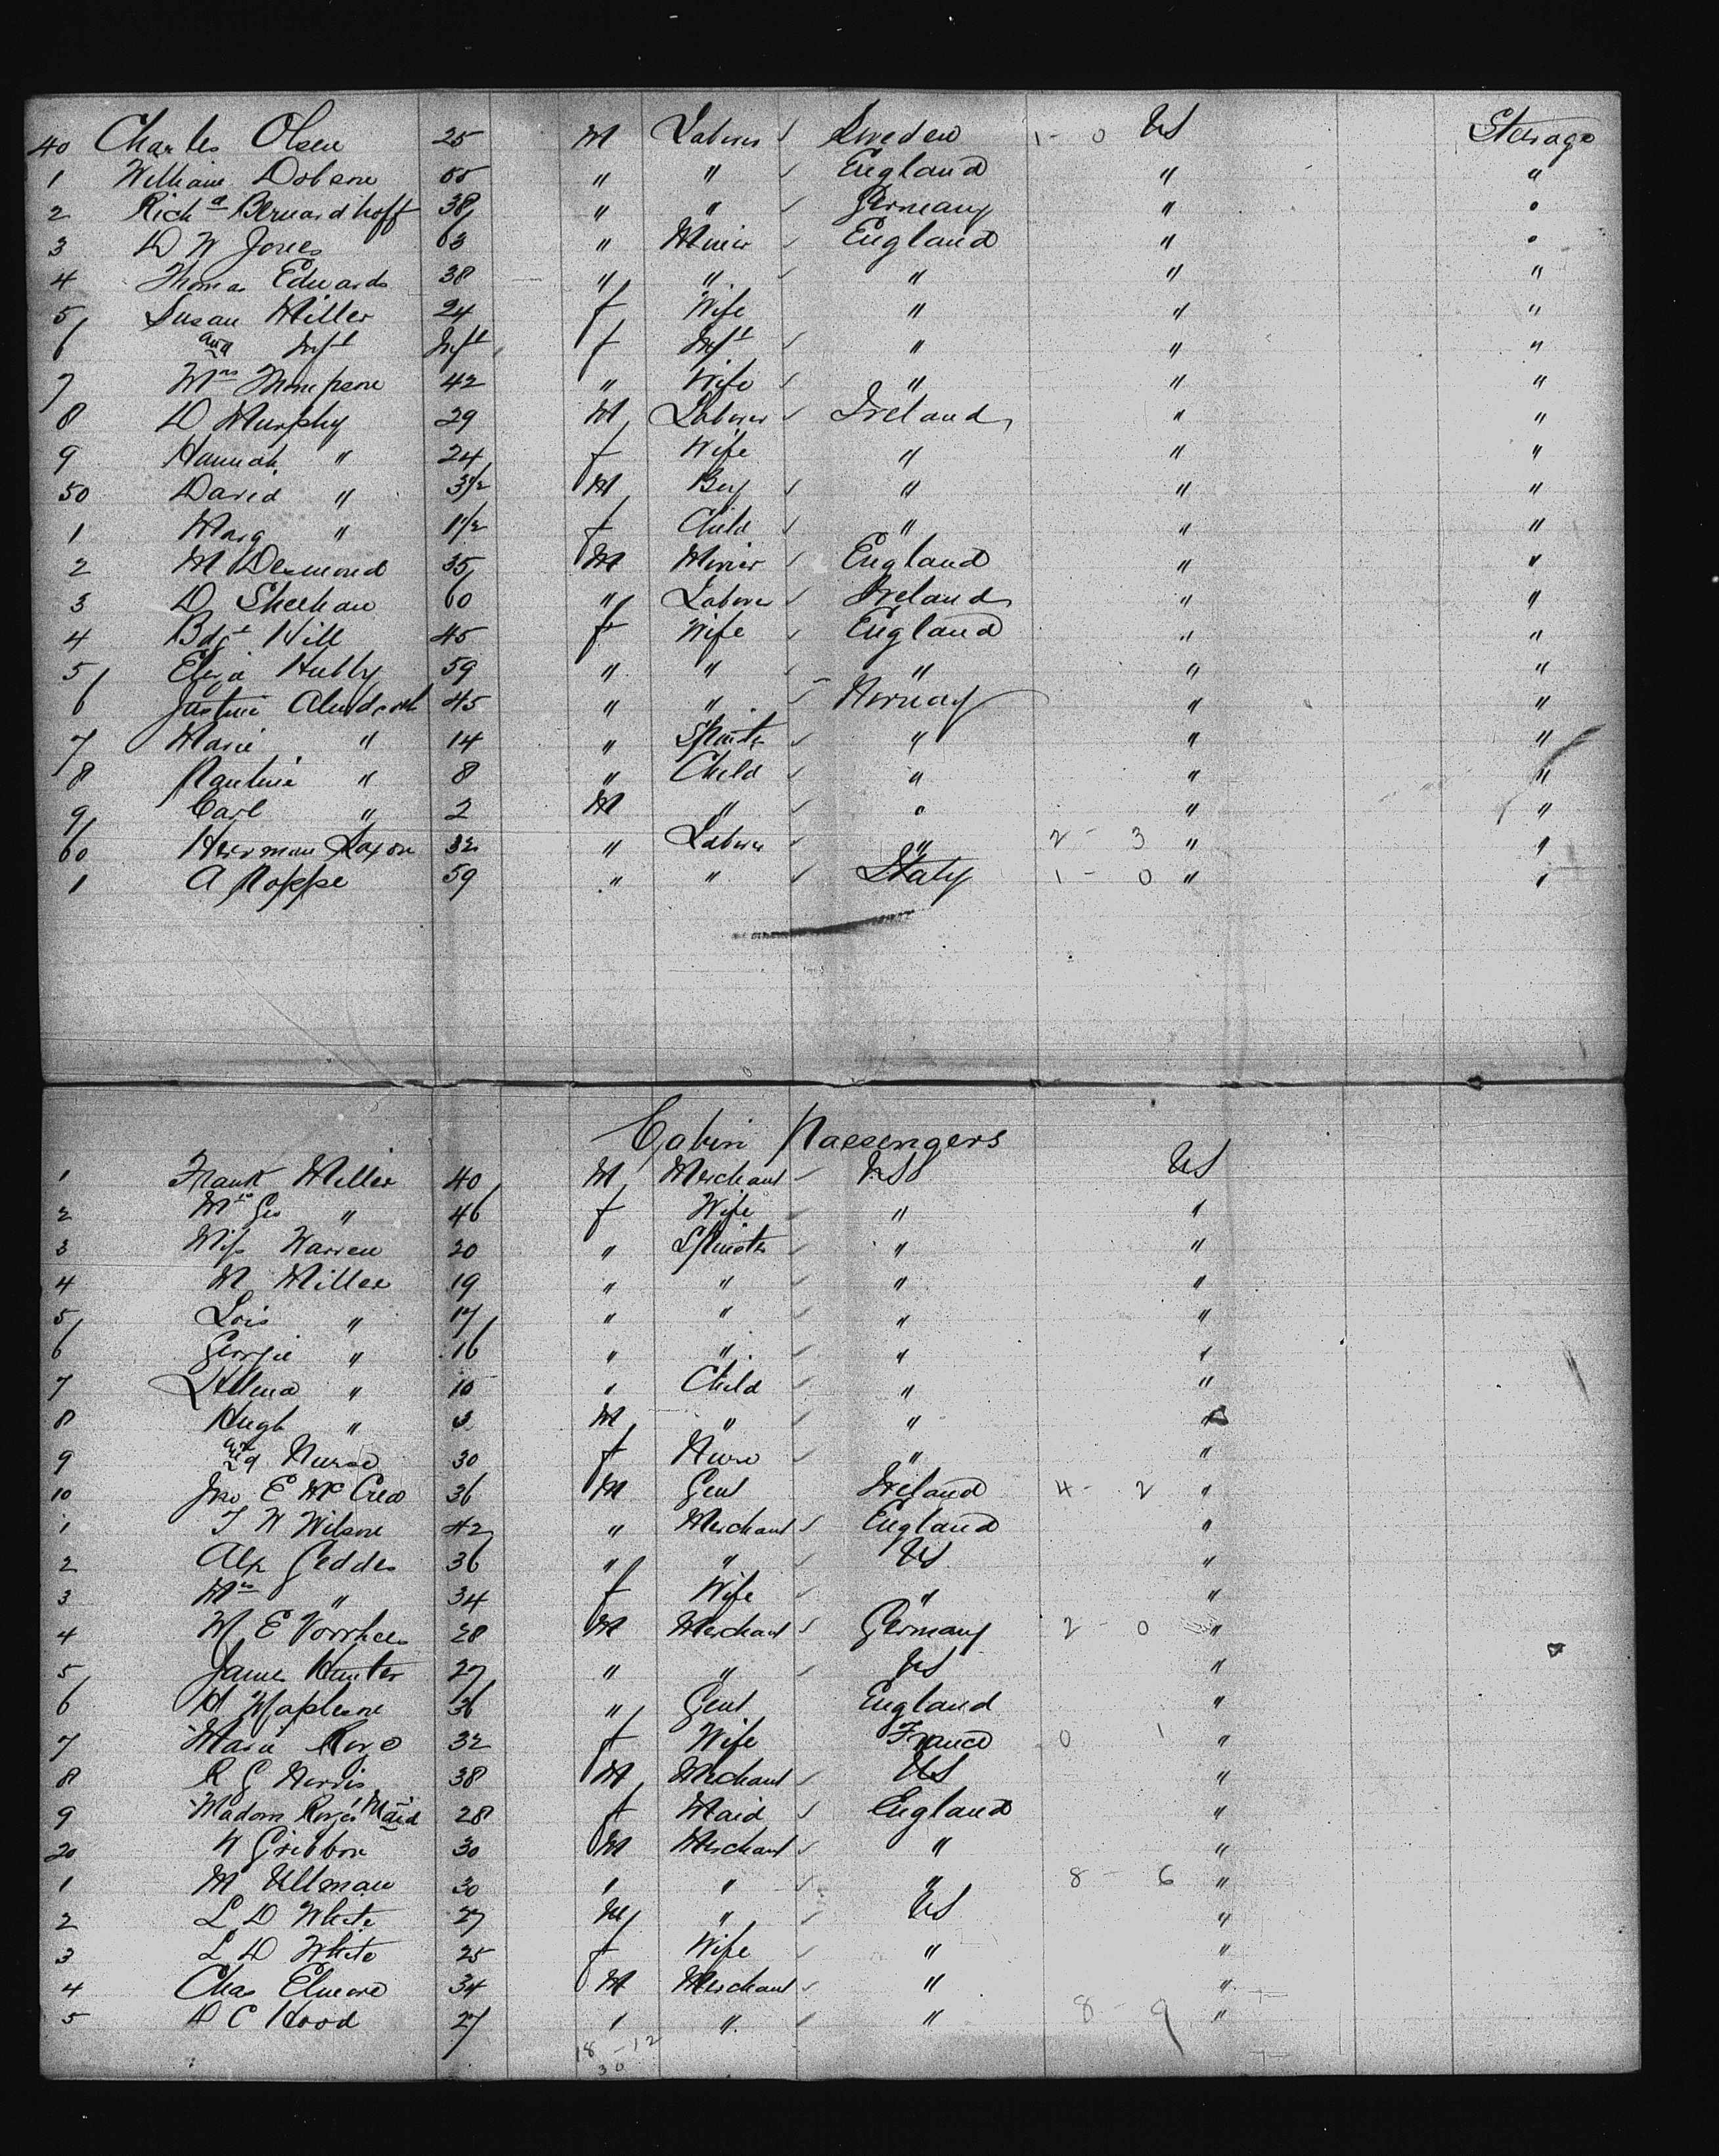 40 Charles Olsen 25 M Laborer ✓ Sweden 1 - 0 US Steerage
1 William Dobson " " ✓ England " "
2 Richd Bernardhoff 38 " " ✓ Germany " "
3 D W Jones 63 " Miner ✓ England " "
4 Thomas Edwards 38 " " ✓ " " "
5 Susan Miller 24 f Wife " " "
6 and Inft Inft f Inft ✓ " " "
7 Mrs Thompson 42 " Wife ✓ " " "
8 D Murphy 29 M Laborer ✓ Ireland " "
9 Hannah " 24 f Wife " " "
50 David " 3 1/2 M Boy ✓ " " "
1 Marg " 1 1/2 f Child ✓ " " "
2 M Desmond 35 M Miner ✓ England " "
3 D Sheehan 60 " Laborer ✓ Ireland " "
4 Bdgt Hill 45 f Wife ✓ England " "
5 Eliza Hubly 59 " " ✓ " " "
6 Justine 45 " " ✓ Norway " "
7 Marie " 14 " Spinster ✓ " " "
8 Pauline " 8 " Child ✓ " " "
9 Carl " 2 M " ✓ " " "
60 Herman Saxon 32 " Laborer ✓ " 2 - 3 " "
1 A Poppe 59 " " ✓ Italy 1 - 0 " "
Cabin Passengers
1 Frank Miller 40 M Merchant ✓ US US
2 Mrs Geo " 46 f Wife ✓ " "
3 Miss Warren 20 " Spinster ✓ " "
4 M Miller 19 " " ✓ " "
5 Lois " 17 " " ✓ " "
6 Georgie " 16 " " ✓ " "
7 " 10 " Child ✓ " "
8 Hugh " 3 M " ✓ " "
9 and Nurse 30 f Nurse ✓ " "
10 Jno E McCrea 36 M Gent Ireland 4 - 2 "
1 T W Wilson 42 " Merchant ✓ England "
2 Alex Geddes 36 " " ✓ US "
3 Mrs " 34 f Wife ✓ " "
4 W E Vorrhees 28 M Merchant ✓ Germany 2 - 0 "
5 James Hunter 27 " " ✓ US "
6 H Mapleson 36 " Gent England "
7 Marie Roze 32 f Wife France 0 1 "
8 R G Norris 38 M Merchant ✓ US "
9 Madam Roze's Maid 28 f Maid ✓ England "
20 W Gribbon 30 M Merchant ✓ " "
1 M Ullman 30 " " ✓ " 8 - 6 "
2 L D White 27 M " ✓ US "
3 L D White 25 f Wife ✓ " "
4 Chas Elmore 34 M Merchant ✓ " "
5 D C Hood 27 " " ✓ " 8 - 9 "
18 - 12
30